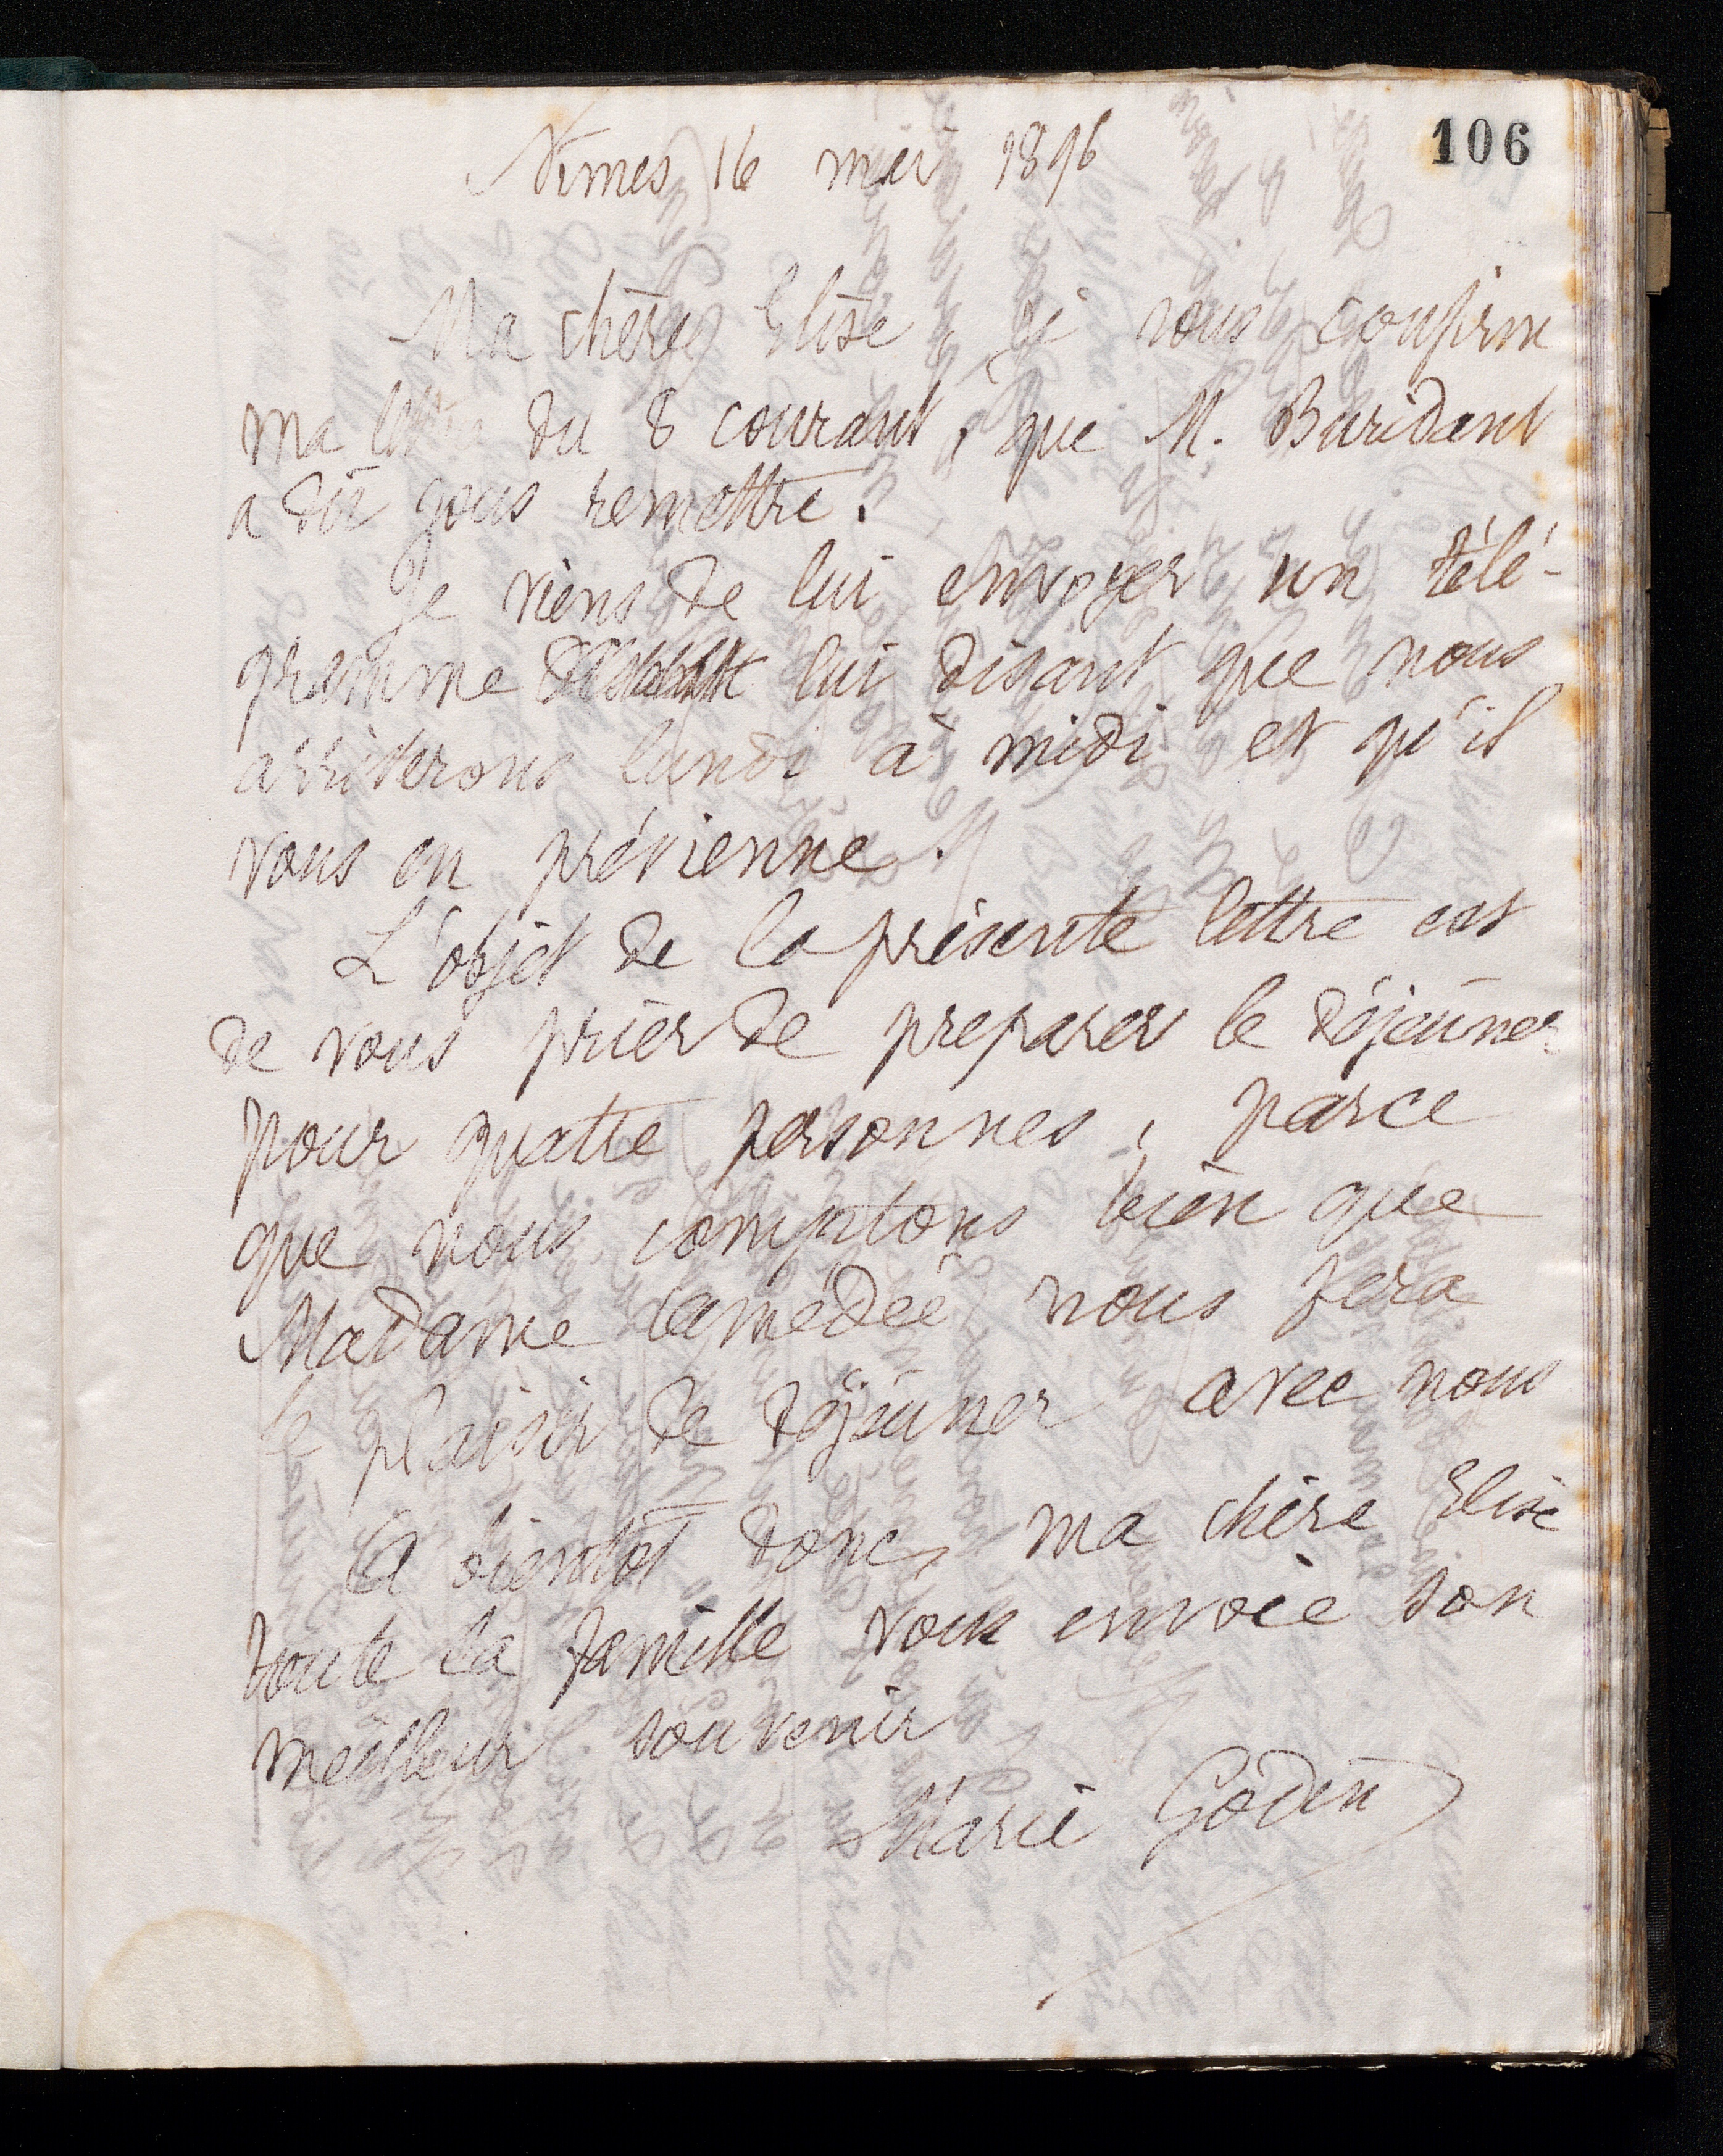 106
Nîmes 16 mai 1896
Ma chère Elise, je vous confirme
ma lettre du 8 courant, que M. Buridant
a dû vous remettre.
Je viens de lui envoyer un télé-
gramme lui disant que nous
arriverons lundi à midi et qu'il
vous en prévienne.
L'objet de la présente lettre est
de vous prier de preparer le déjeuner
pour quatre personnes, parce
que nous comptons bien que
Madame Amédée nous fera
le plaisir de déjeuner avec nous
A bientôt donc, ma chère Elise
toute la famille vous envoie son
meilleur souvenir
Marie Godin